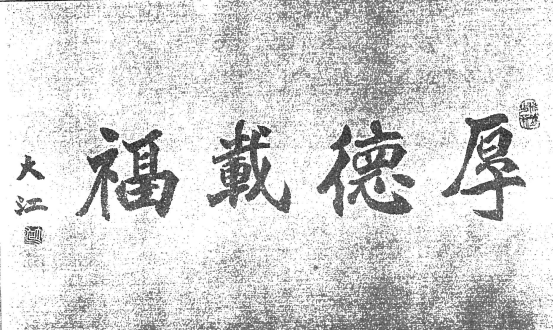 厚德載福
大江